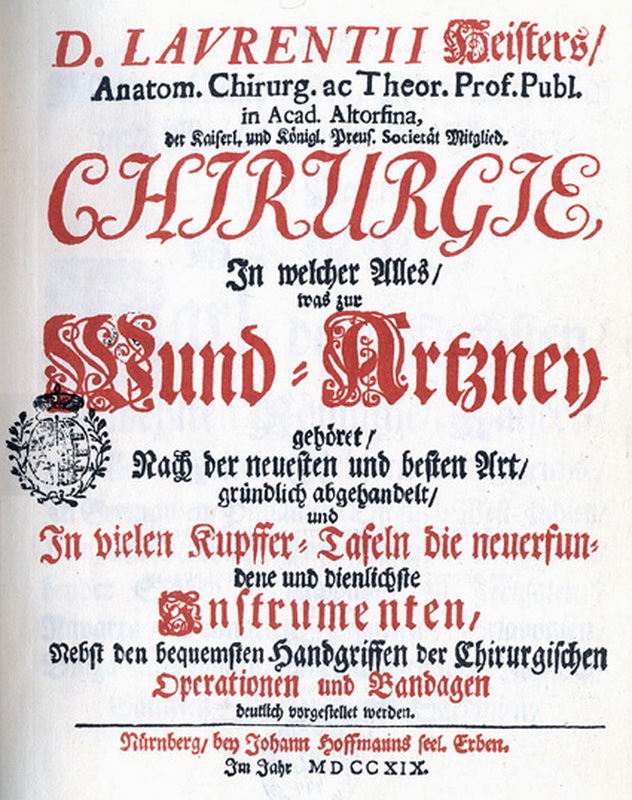 D. LAVRENTII Heisters/
Anatom. Chirurg. ac Theor. Prof. Publ.
in Acad. Altorfina,
der Kaiserl. und Königl. Preus. Societät Mitglied.
CHIRURGIE,
In welcher Alles/
was zur
Wund-Artzney
gehöret/
Nach der neuesten und besten Art/
gründlich abgehandelt/
und
In vielen Kupffer-Tafeln die neuerfun-
dene und dienlichste
Instrumenten,
Nebst den bequemsten Handgriffen der Chirurgischen
Operationen und Bandagen
deutlich vorgestellet werden.
Nürnberg/ bey Johann Hoffmanns seel. Erben.
Im Jahr MDCCXIX.